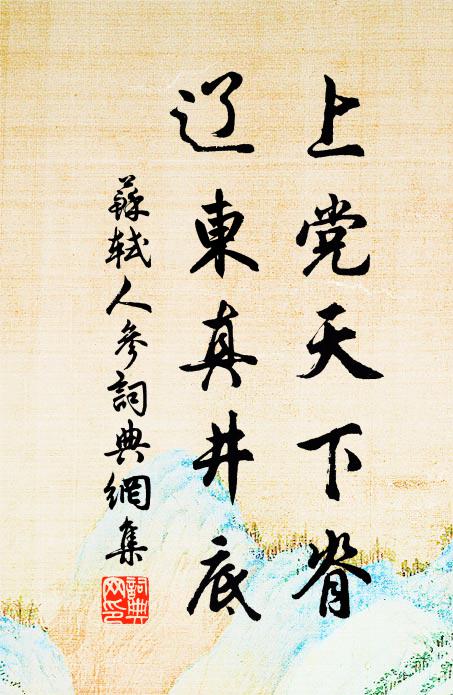 上党天下脊
辽東真井底
蘇軾人參詞典網集
詞典